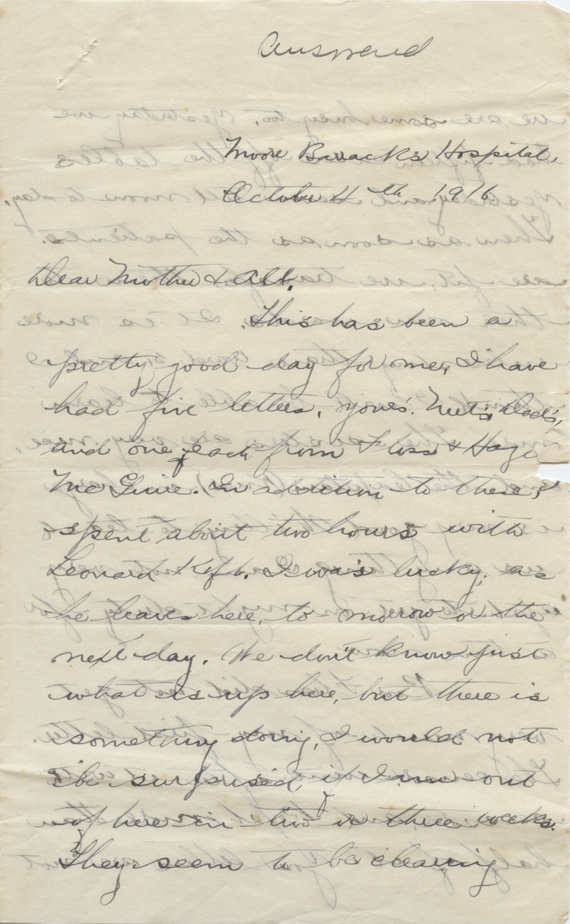 Answered
Moore Barracks Hospital,
October 4th, 1916
Dear Mother & All.
This has been a
pretty good day for me, I have
had five letters, yours. Net's, Dad's,
and one each from Floss & Haze
McGuire. In addition to these, I
spent about two hours with
Leonard I was lucky, as
he leaves here, to morrow or the
next day. We don't know just
what is up here, but there is
something doing, I would not
be surprised if I am out
of here in two or three weeks.
They seem to be clearing